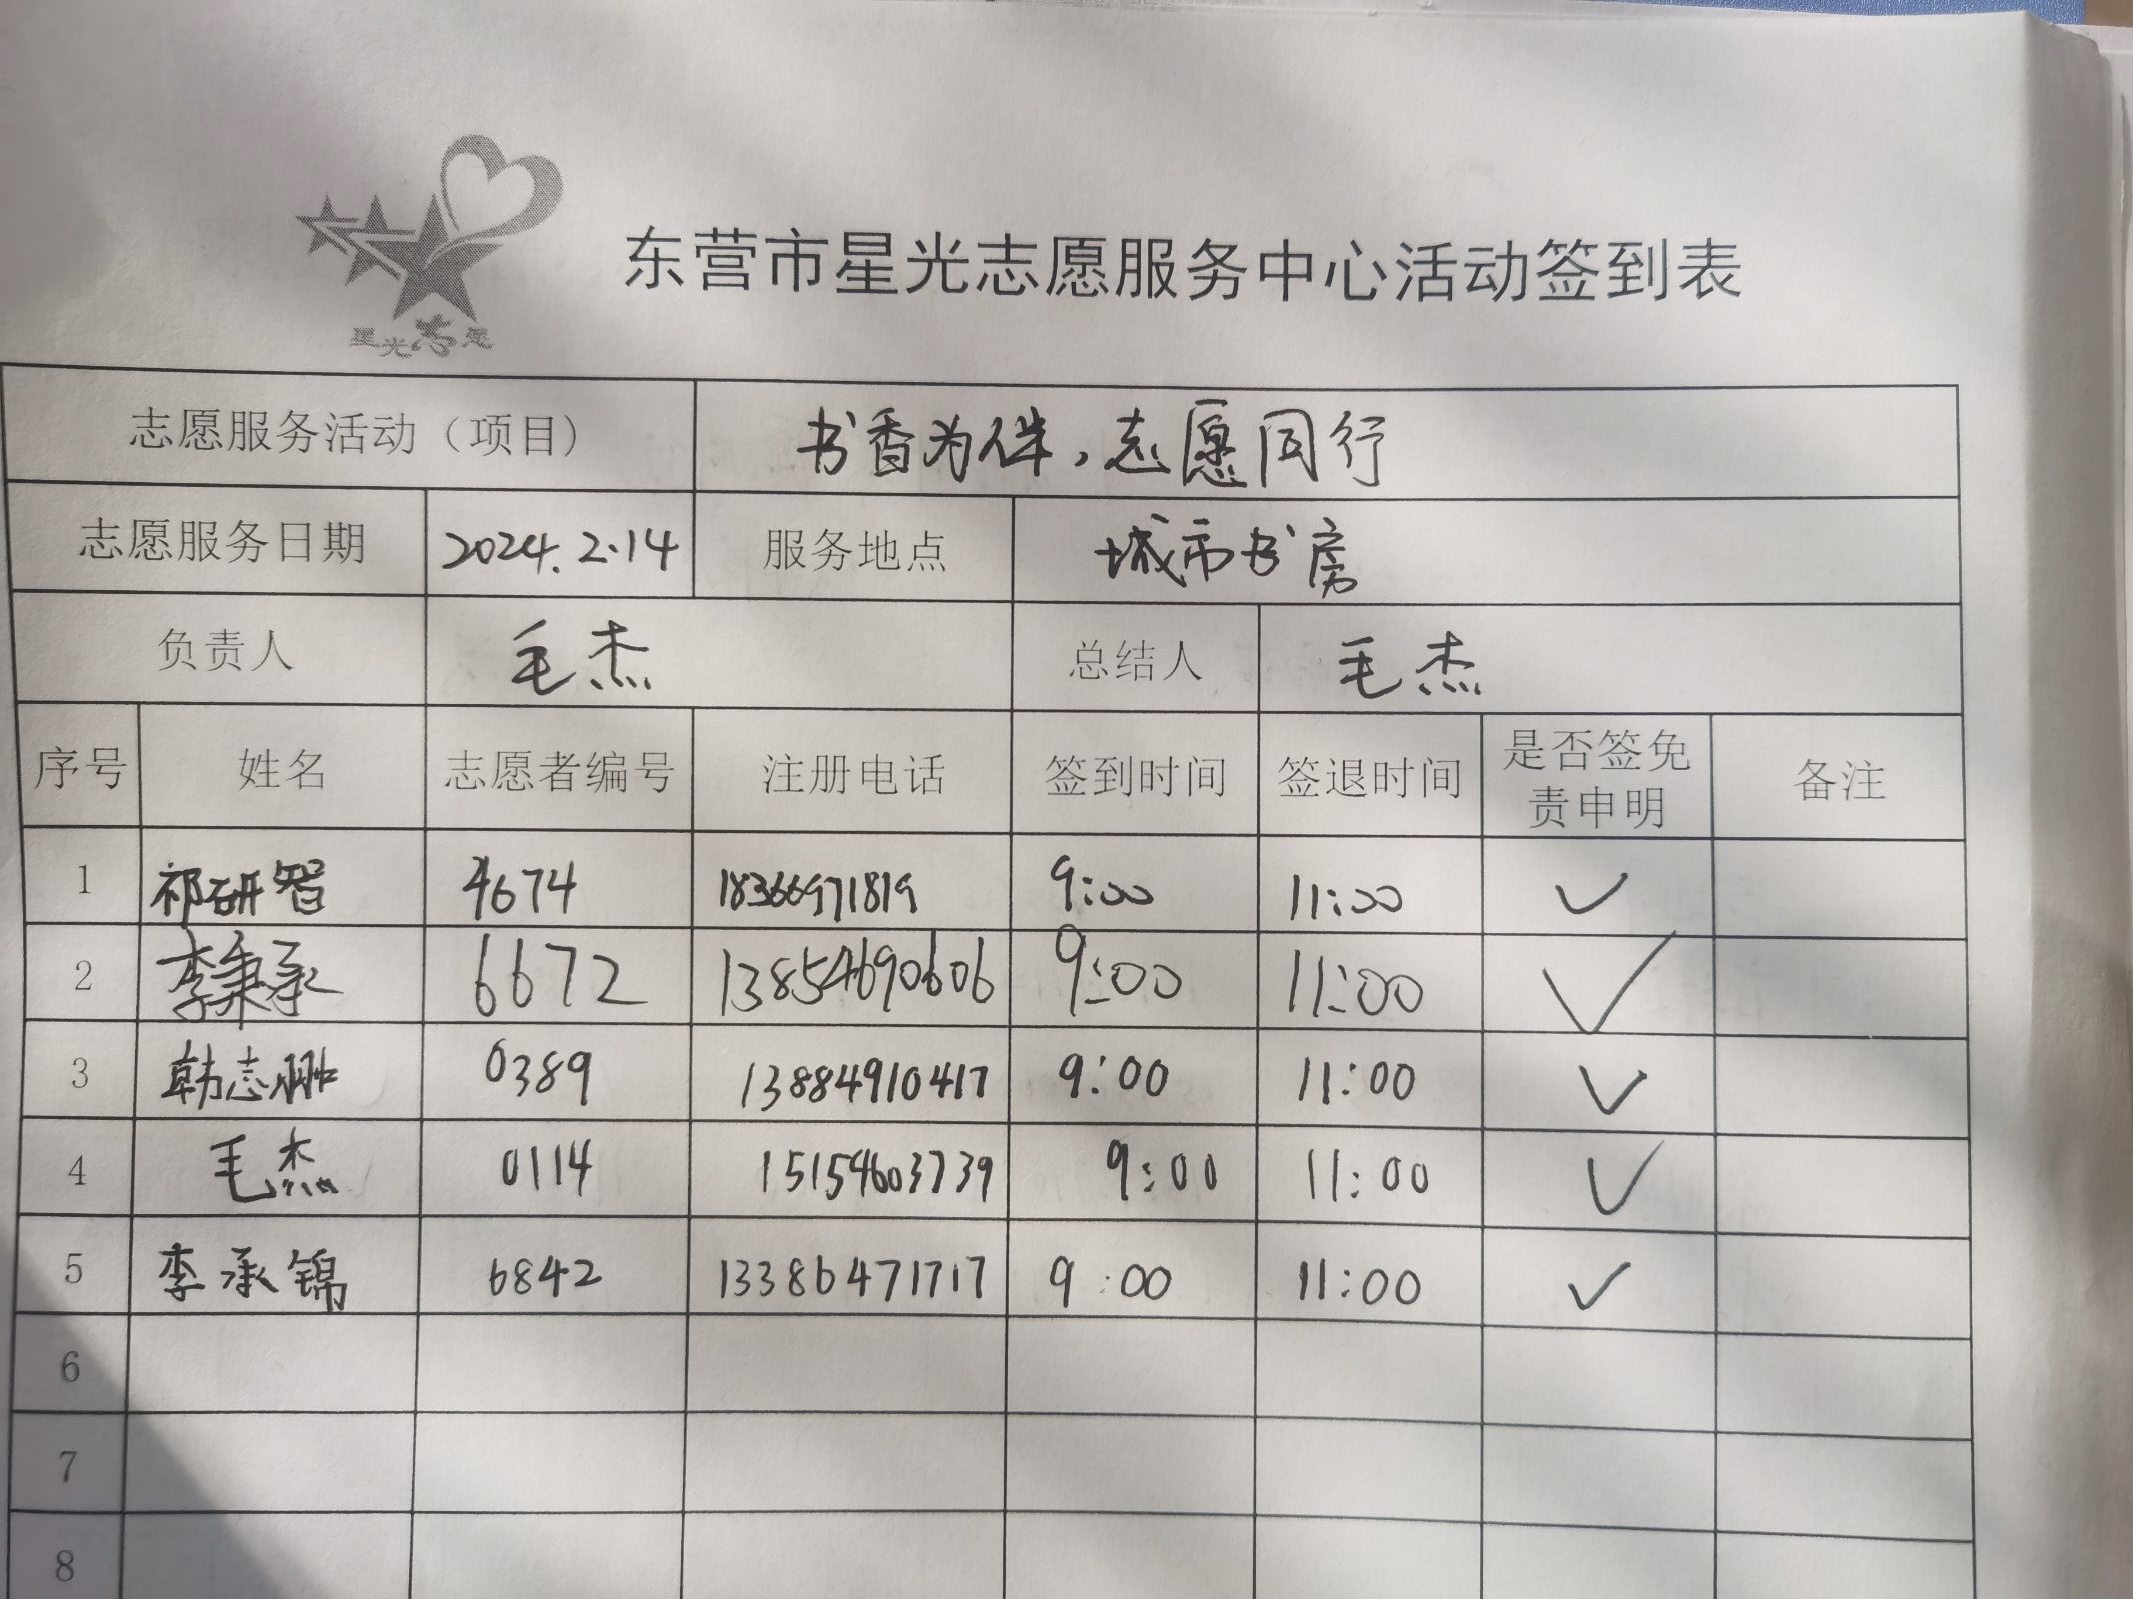 星光志愿
东营市星光志愿服务中心活动签到表
志愿服务活动（项目） 书香为伴，志愿同行
志愿服务日期 2024.2.14 服务地点 城市书房
负责人 毛杰 总结人 毛杰
序号 姓名 志愿者编号 注册电话 签到时间 签退时间 是否签免责申明 备注
1 祁研智 4674 18366971819 9:00 11:00 ✓
2 李秉承 6672 13854690606 9:00 11:00 ✓
3 韩志 0389 13884910417 9:00 11:00 ✓
4 毛杰 0114 15154603739 9:00 11:00 ✓
5 李承锦 6842 13386471717 9:00 11:00 ✓
6
7
8